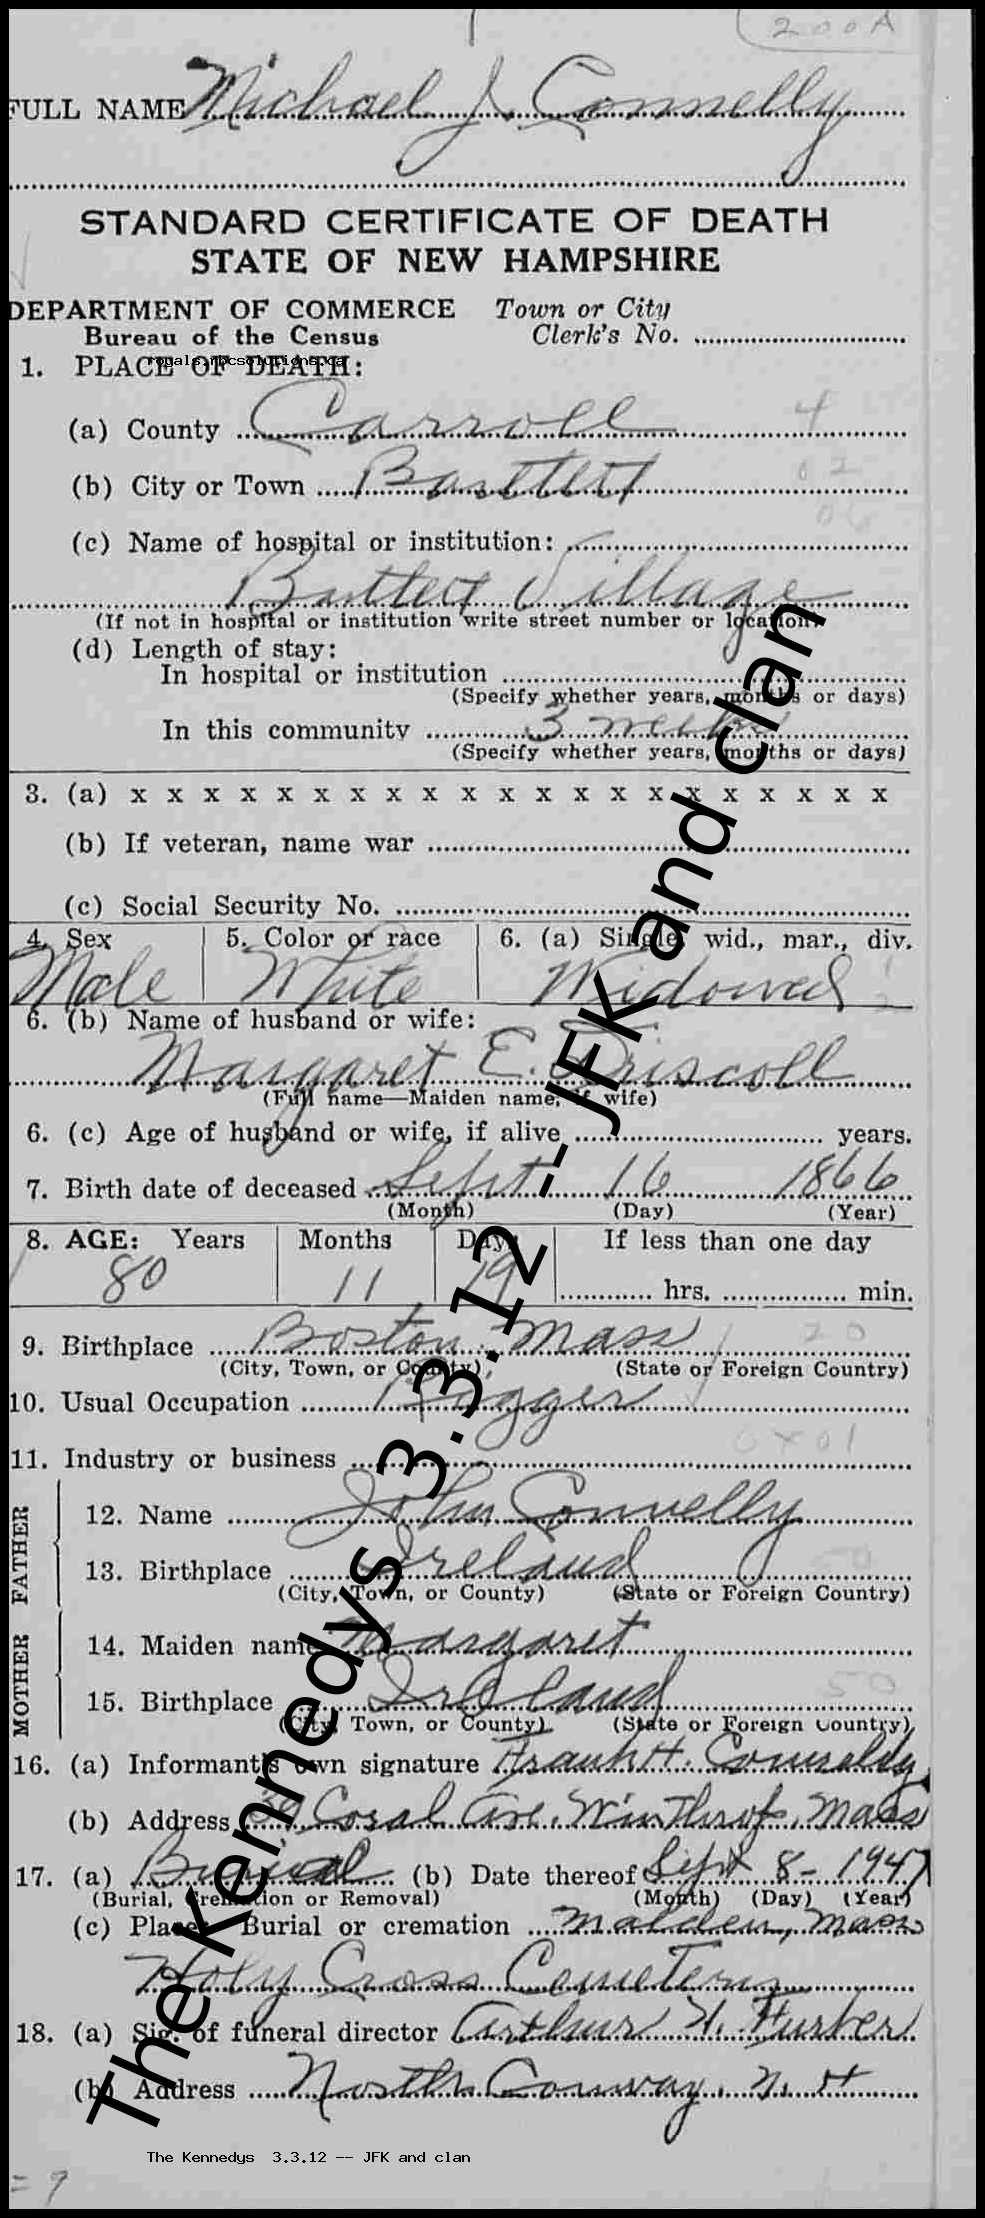 200A
FULL NAME Michael J. Connelly
STANDARD CERTIFICATE OF DEATH
STATE OF NEW HAMPSHIRE
DEPARTMENT OF COMMERCE Town or City
Bureau of the Census Clerk's No.
royals.rbcsolutions.ca
1. PLACE OF DEATH:
(a) County Carroll 4
(b) City or Town Bartlett 02
06
(c) Name of hospital or institution:
Bartlett Village
(If not in hospital or institution write street number or location)
(d) Length of stay:
In hospital or institution
(Specify whether years, months or days)
In this community 3 weeks
(Specify whether years, months or days)
3. (a) x x x x x x x x x x x x x x x x x x x x x
(b) If veteran, name war
(c) Social Security No.
4. Sex 5. Color or race 6. (a) Single, wid., mar., div.
Male White Widowed
6. (b) Name of husband or wife:
Margaret E. Driscoll
(Full name—Maiden name, if wife)
6. (c) Age of husband or wife, if alive years.
7. Birth date of deceased Sept 16 1866
(Month) (Day) (Year)
8. AGE: Years Months Days If less than one day
80 11 19 hrs. min.
9. Birthplace Boston Mass 20
(City, Town, or County) (State or Foreign Country)
10. Usual Occupation
11. Industry or business 0X01
FATHER
12. Name John Connelly
13. Birthplace Ireland 50
(City, Town, or County) (State or Foreign Country)
MOTHER
14. Maiden name Margaret
15. Birthplace Ireland 50
(City, Town, or County) (State or Foreign Country)
16. (a) Informant's own signature Frank H. Connelly
(b) Address 39 Coral Ave. Winthrop, Mass
17. (a) Burial (b) Date thereof Sept 8- 1947
(Burial, Cremation or Removal) (Month) (Day) (Year)
(c) Place: Burial or cremation Malden, Mass
Holy Cross Cemetery
18. (a) Sig. of funeral director Arthur H. Furber
(b) Address North Conway, N. H
The Kennedys 3.3.12 -- JFK and clan
The Kennedys 3.3.12 -- JFK and clan
= 9